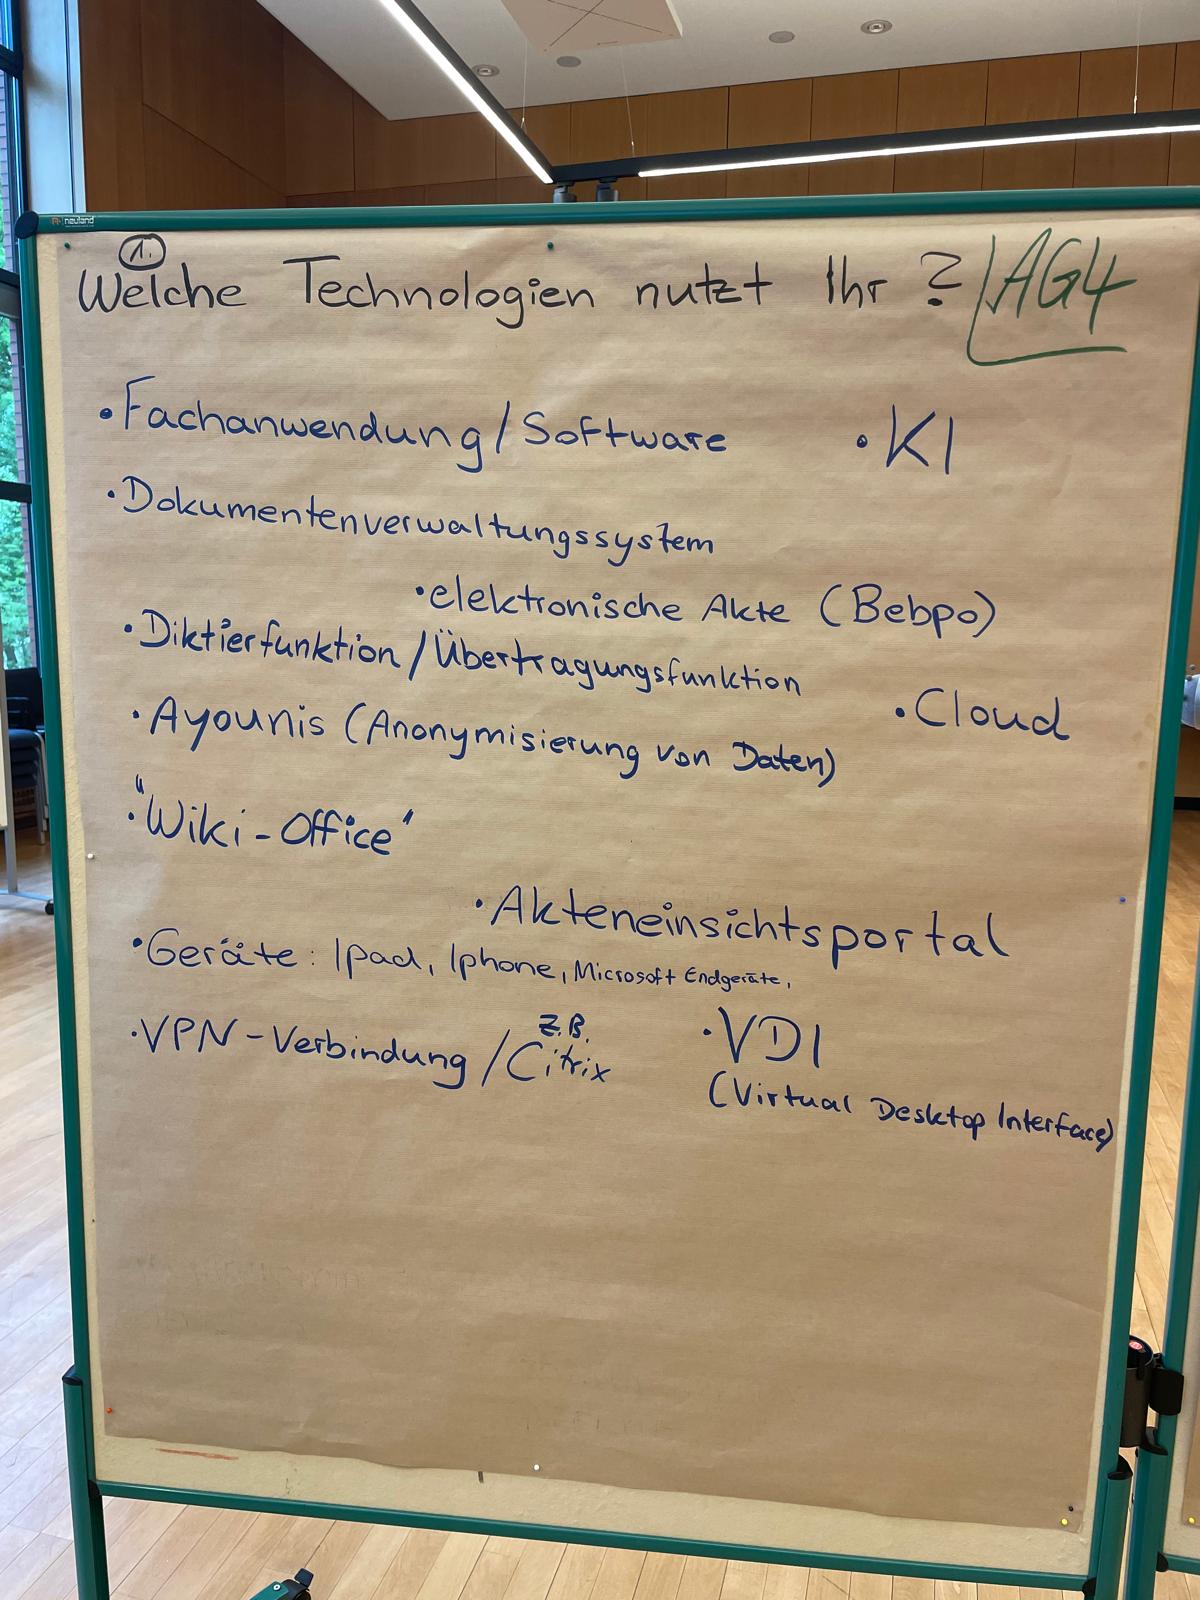 neuland
1.
Welche Technologien nutzt Ihr ? AG4
• Fachanwendung / Software
• KI
• Dokumentenverwaltungssystem
• elektronische Akte (Bebpo)
• Diktierfunktion / Übertragungsfunktion
• Cloud
• Ayounis (Anonymisierung von Daten)
• "Wiki-Office"
• Akteneinsichtsportal
• Geräte: Ipad, Iphone, Microsoft Endgeräte,
• VPN-Verbindung / z.B. Citrix
• VDI
(Virtual Desktop Interface)